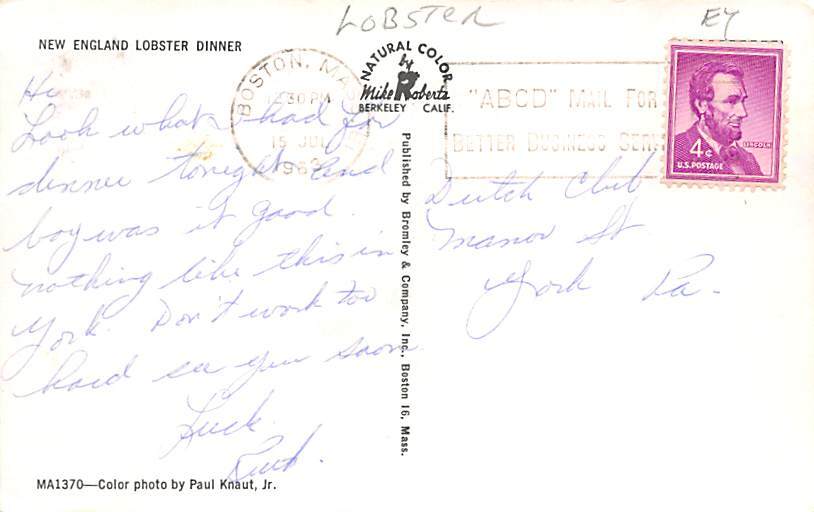 LOBSTER
EY
NEW ENGLAND LOBSTER DINNER
BOSTON, MA
30 PM
15 JUL
196
NATURAL COLOR
by
Mike Roberts
BERKELEY CALIF.
"ABCD" MAIL FOR
BETTER BUSINESS SERV
4¢
LINCOLN
U.S. POSTAGE
Hi
Look what I had for
dinner tonight and
boy was it good.
nothing like this in
York. Don't work too
hard see you soon.
Luck.
Dutch Club
Manor St
York Pa-
Published by Bromley & Company, Inc., Boston 16, Mass.
MA1370—Color photo by Paul Knaut, Jr.